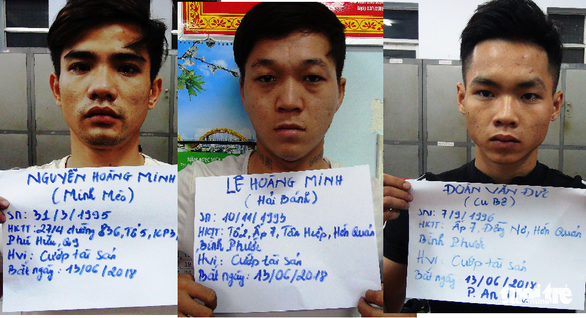 NGUYỄN HOÀNG MINH
(Minh Méo)
SN: 31/3/1995
HKTT: 27/4 đường 836, Tổ 5, KP3,
Phú Hữu, Q9
HVi: Cướp tài sản
Bắt ngày: 13/06/2018
LÊ HOÀNG MINH
(Hải Bánh)
SN: 10/11/1993
HKTT: Tổ 2, Ấp 7, Tân Hiệp, Hớn Quản
Bình Phước
HVi: Cướp tài sản
Bắt ngày: 13/06/2018
ĐOÀN VĂN ĐỨC
(Cu Bê)
SN: 7/9/1996
HKTT: Ấp 7, Đồng Nơ, Hớn Quản
Bình Phước
HVi: Cướp tài sản
Bắt ngày 13/06/2018
P. An